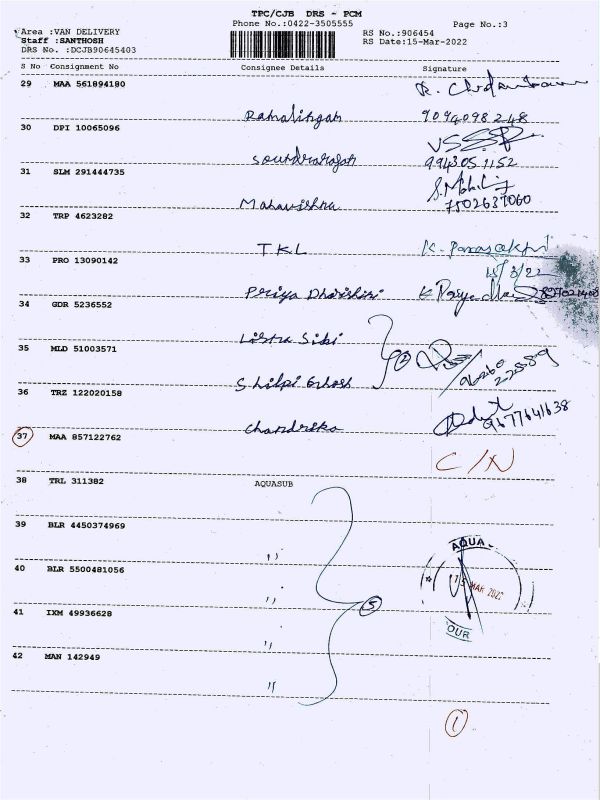 TPC/CJB DRS - PCM
Phone No.:0422-3505555
Page No.:3
Area :VAN DELIVERY
Staff :SANTHOSH
DRS No. :DCJB90645403
RS No.:906454
RS Date:15-Mar-2022
S No Consignment No Consignee Details Signature
29 MAA 561894180
Ramalingam 9094098248
30 DPI 10065096
Soundrarajan 9943051152
31 SLM 291444735
Mahavishnu 7502637060
32 TRP 4623282
TKL
33 PRO 13090142
15/3/22
Priya Dharshini
34 GDR 5236552
35 MLD 51003571
2
Shilpi Ghosh 96260 22589
36 TRZ 122020158
Chandrika 9677641638
37 MAA 857122762
C/N
38 TRL 311382 AQUASUB
39 BLR 4450374969
"
AQUA
40 BLR 5500481056
15 MAR 2022
" 5
41 IXM 49936628
OUR
"
42 MAN 142949
"
1